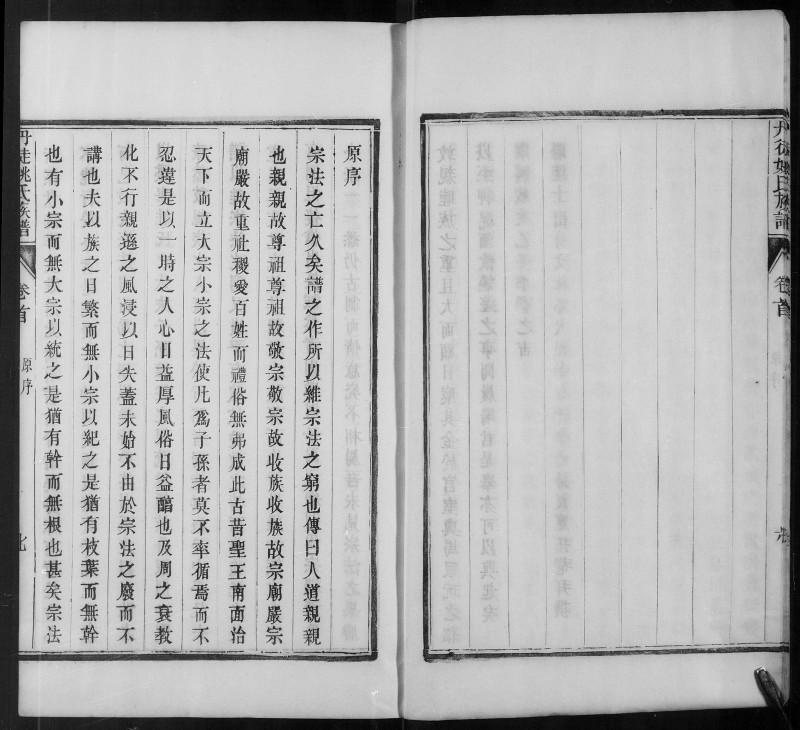 丹徒姚氏族譜
卷首
原序
原序
宗法之亡久矣譜之作所以維宗法之窮也傳曰人道親親
也親親故尊祖尊祖故敬宗敬宗故收族收族故宗廟嚴宗
廟嚴故重社稷愛百姓而禮俗無弗成此古昔聖王南面治
天下而立大宗小宗之法使凡為子孫者莫不率循焉而不
忍違是以一時之人心日益厚風俗日益醇也及周之衰教
化不行親遜之風浸以日失蓋未始不由於宗法之廢而不
講也夫以族之日繁而無小宗以紀之是猶有枝葉而無幹
也有小宗而無大宗以統之是猶有幹而無根也甚矣宗法
丹徒姚氏族譜
卷首
原序
七